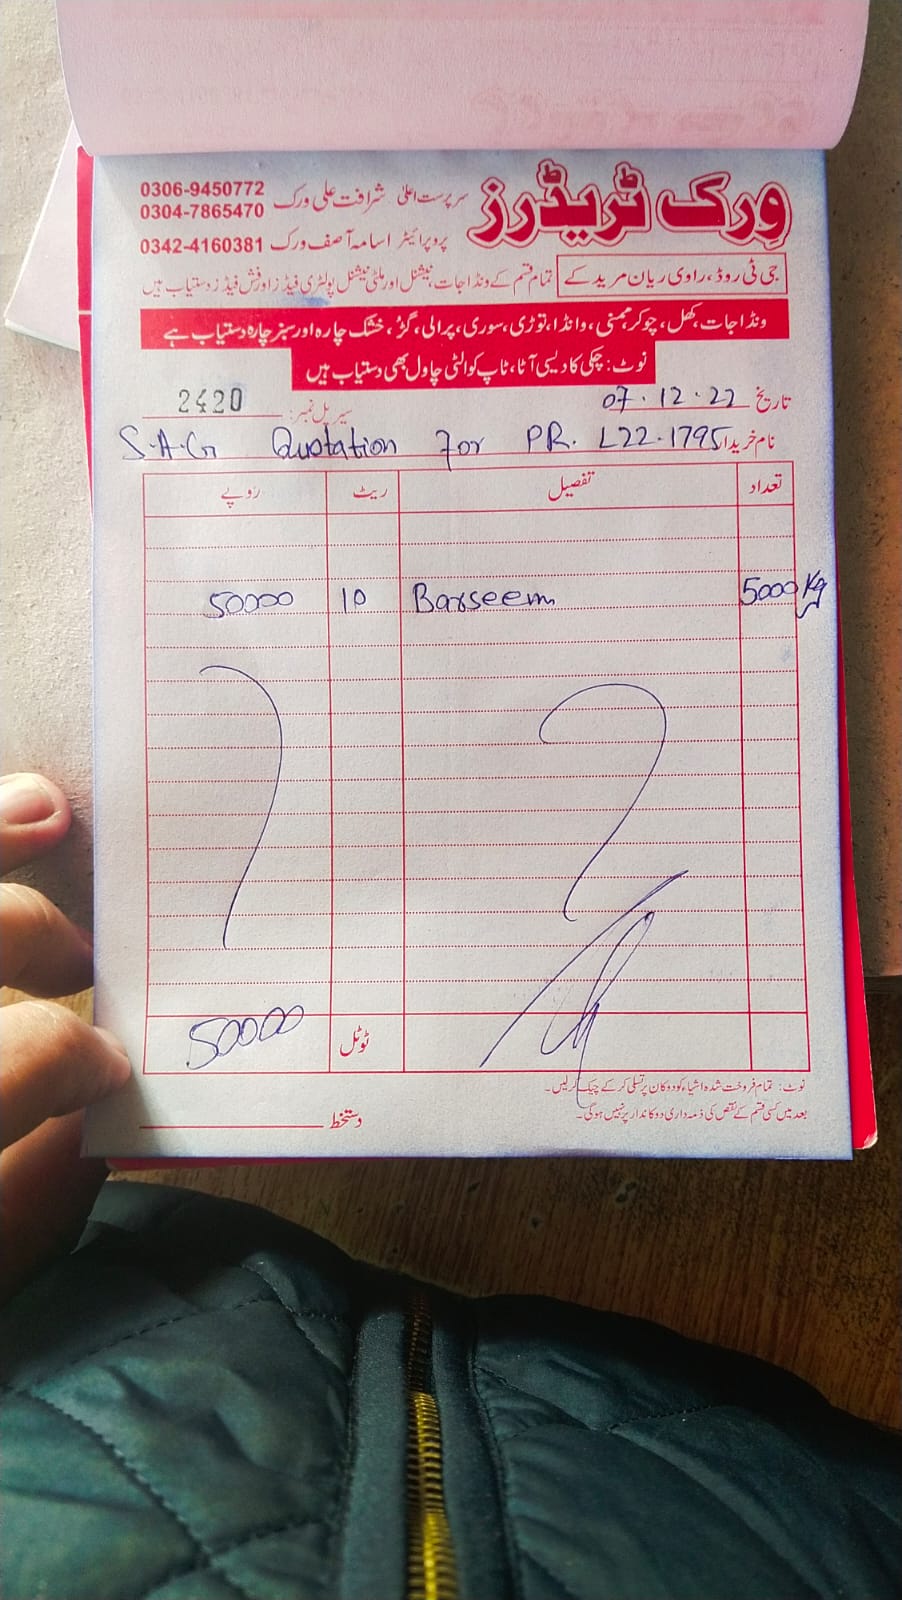 وِرک ٹریڈرز
سرپرست اعلیٰ شرافت علی ورک 0306-9450772
0304-7865470
پروپرائیٹر اسامہ آصف ورک 0342-4160381
جی ٹی روڈ، راوی ریان مریدکے تمام قسم کے ونڈا جات، نیشنل اور ملٹی نیشنل پولٹری فیڈز اور فش فیڈز دستیاب ہیں
ونڈا جات، کھل، چوکر، ممنی، وانڈا، توڑی، سوری، پرالی، گڑ، خشک چارہ اور سبز چارہ دستیاب ہے
نوٹ: چکی کا دیسی آٹا، ٹاپ کوالٹی چاول بھی دستیاب ہیں
تاریخ 07.12.22 سیریل نمبر: 2420
نام خریدار S.A.G Quotation For PR. L22.1795
تعداد تفصیل ریٹ روپے
5000 Kg Barseem 10 50000
ٹوٹل 50000
نوٹ: تمام فروخت شدہ اشیاء کو دوکان پر تسلی کر کے چیک کر لیں۔
بعد میں کسی قسم کے نقص کی ذمہ داری دوکاندار پر نہیں ہوگی۔
دستخط